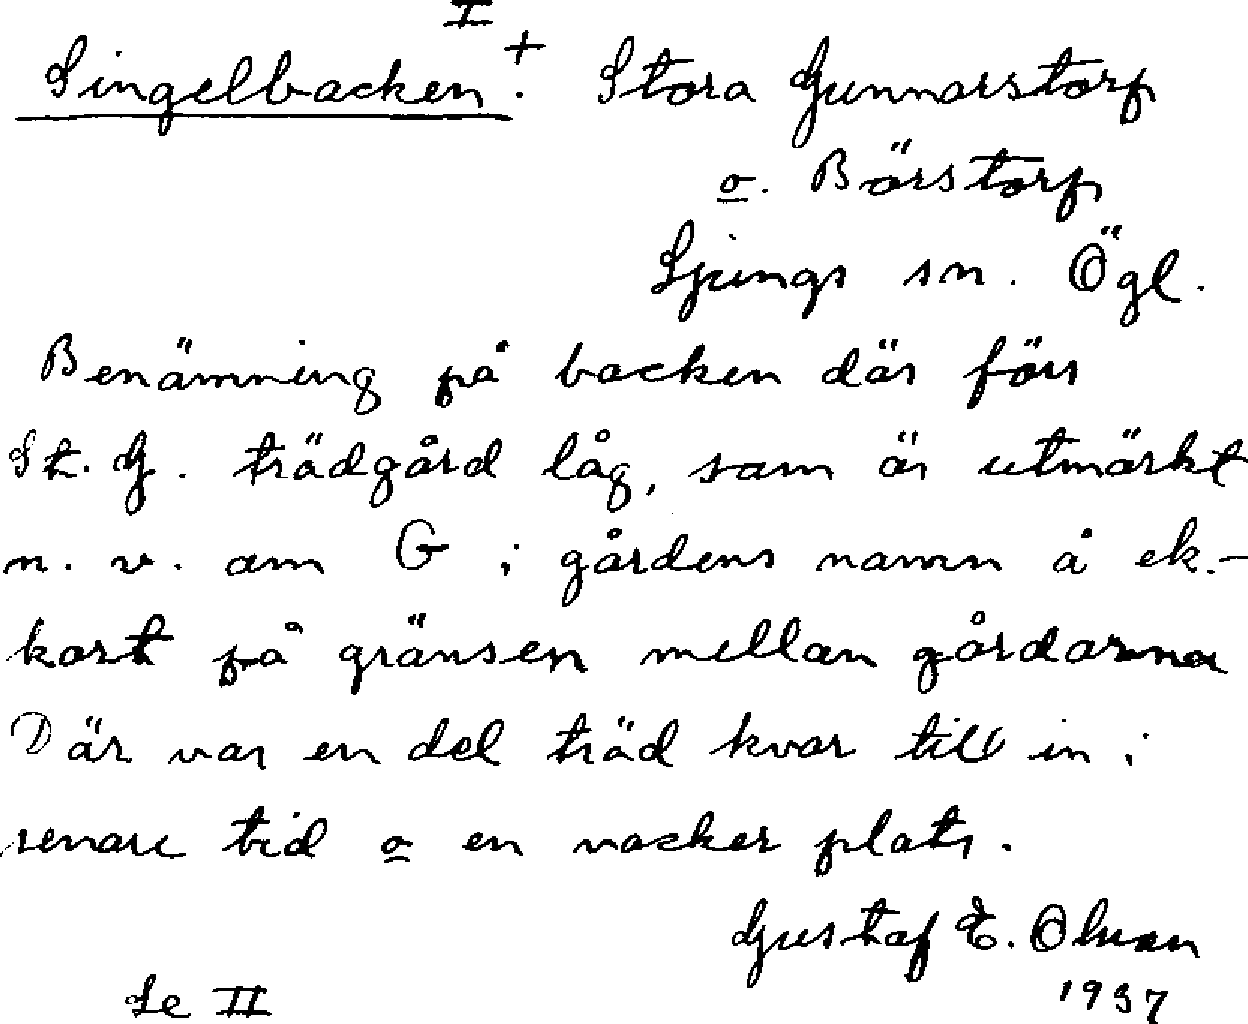 I
Singelbacken.+ Stora Gunnarstorp
o. Börstorp
Ljungs sn. Ögl.
Benämning på backen där förr
St. G. trädgård låg, som är utmärkt
n. v. om G i gårdens namn å ek.-
kart på gränsen mellan gårdarna
Där var en del träd kvar till in i
senare tid o en vacker plats.
Gustaf E. Olsson
1937
Se II